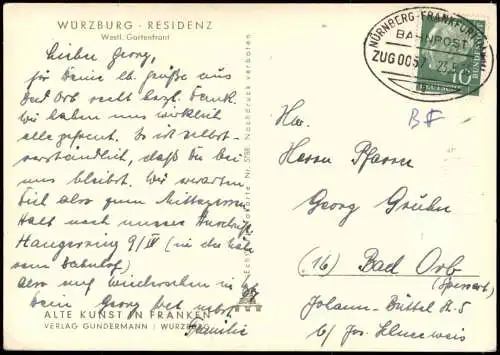 WÜRZBURG · RESIDENZ
Westl. Gartenfront
Lieber Georg,
für Deine lb. Grüße aus
Bad Orb recht herzl. Dank.
Wir haben uns wirklich
alle gefreut. Es ist selbst-
verständlich, daß Du bei
uns bleibst. Wir erwarten
Dich also zum Mittagessen.
Halt noch unsere Anschrift:
Haugerring 9/IV (in der Nähe
vom Bahnhof)
Also auf Wiedersehen in
Dein Georg
Familie
ALTE KUNST IN FRANKEN
VERLAG GUNDERMANN / WÜRZBURG
Nr. 5758 Nachdruck verboten
NÜRNBERG-FRANKFURT
BAHNPOST
ZUG 0057
10
Herrn Pfarrer
Georg Gruber
(16) Bad Orb
(Spessart)
Johann-Büttel
b/ Jos.